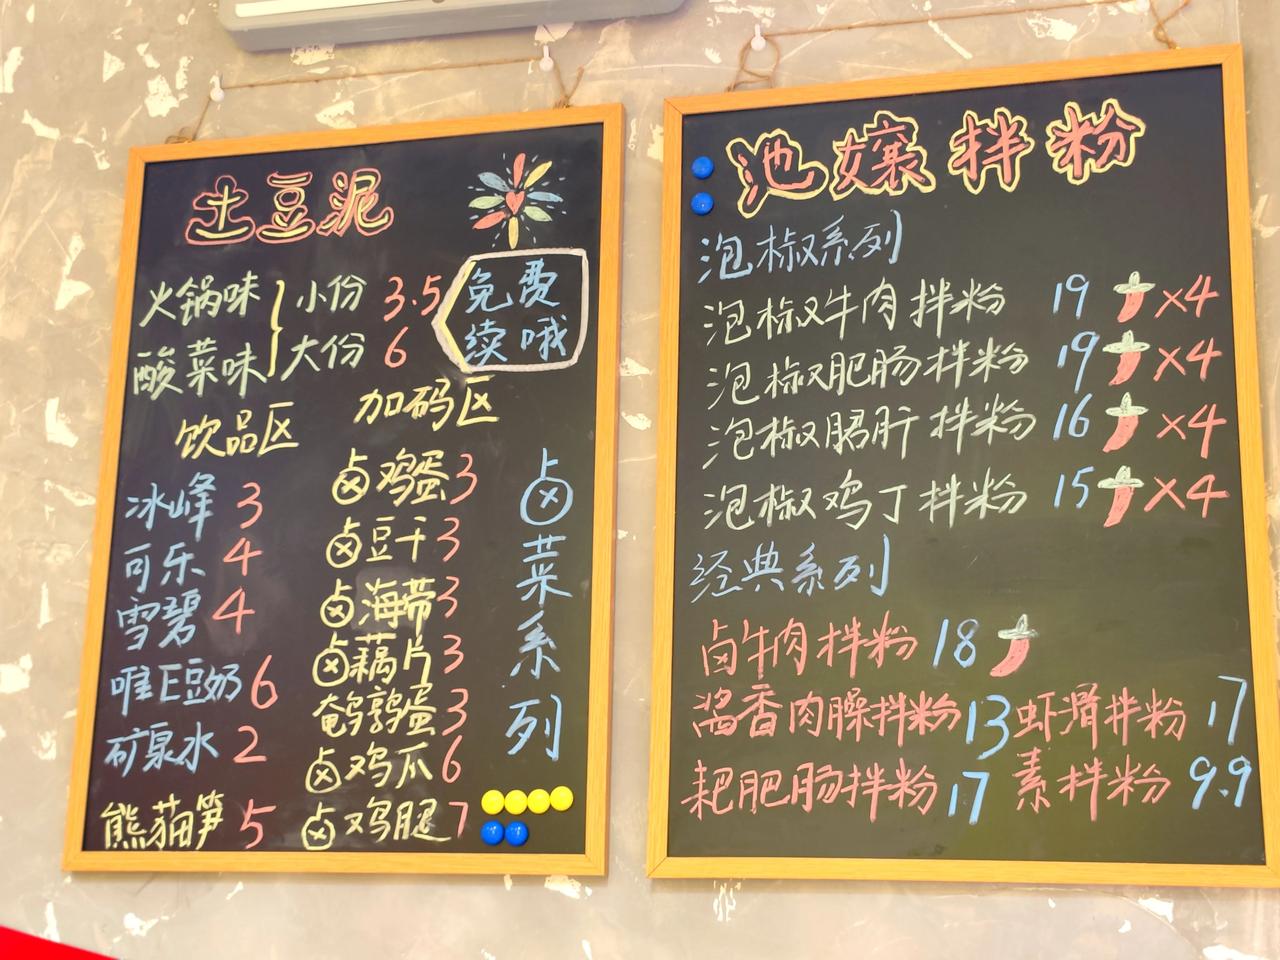 土豆泥
火锅味 小份 3.5
酸菜味 大份 6
免费
续哦
饮品区
冰峰 3
可乐 4
雪碧 4
唯E豆奶 6
矿泉水 2
熊猫笋 5
加码区
卤鸡蛋 3
卤豆干 3
卤海带 3
卤藕片 3
鹌鹑蛋 3
卤鸡爪 6
卤鸡腿 7
卤菜系列
池嬢拌粉
泡椒系列
泡椒牛肉拌粉 19 ×4
泡椒肥肠拌粉 19 ×4
泡椒胗肝拌粉 16 ×4
泡椒鸡丁拌粉 15 ×4
经典系列
卤牛肉拌粉 18
酱香肉臊拌粉 13 虾滑拌粉 17
耙肥肠拌粉 17 素拌粉 9.9